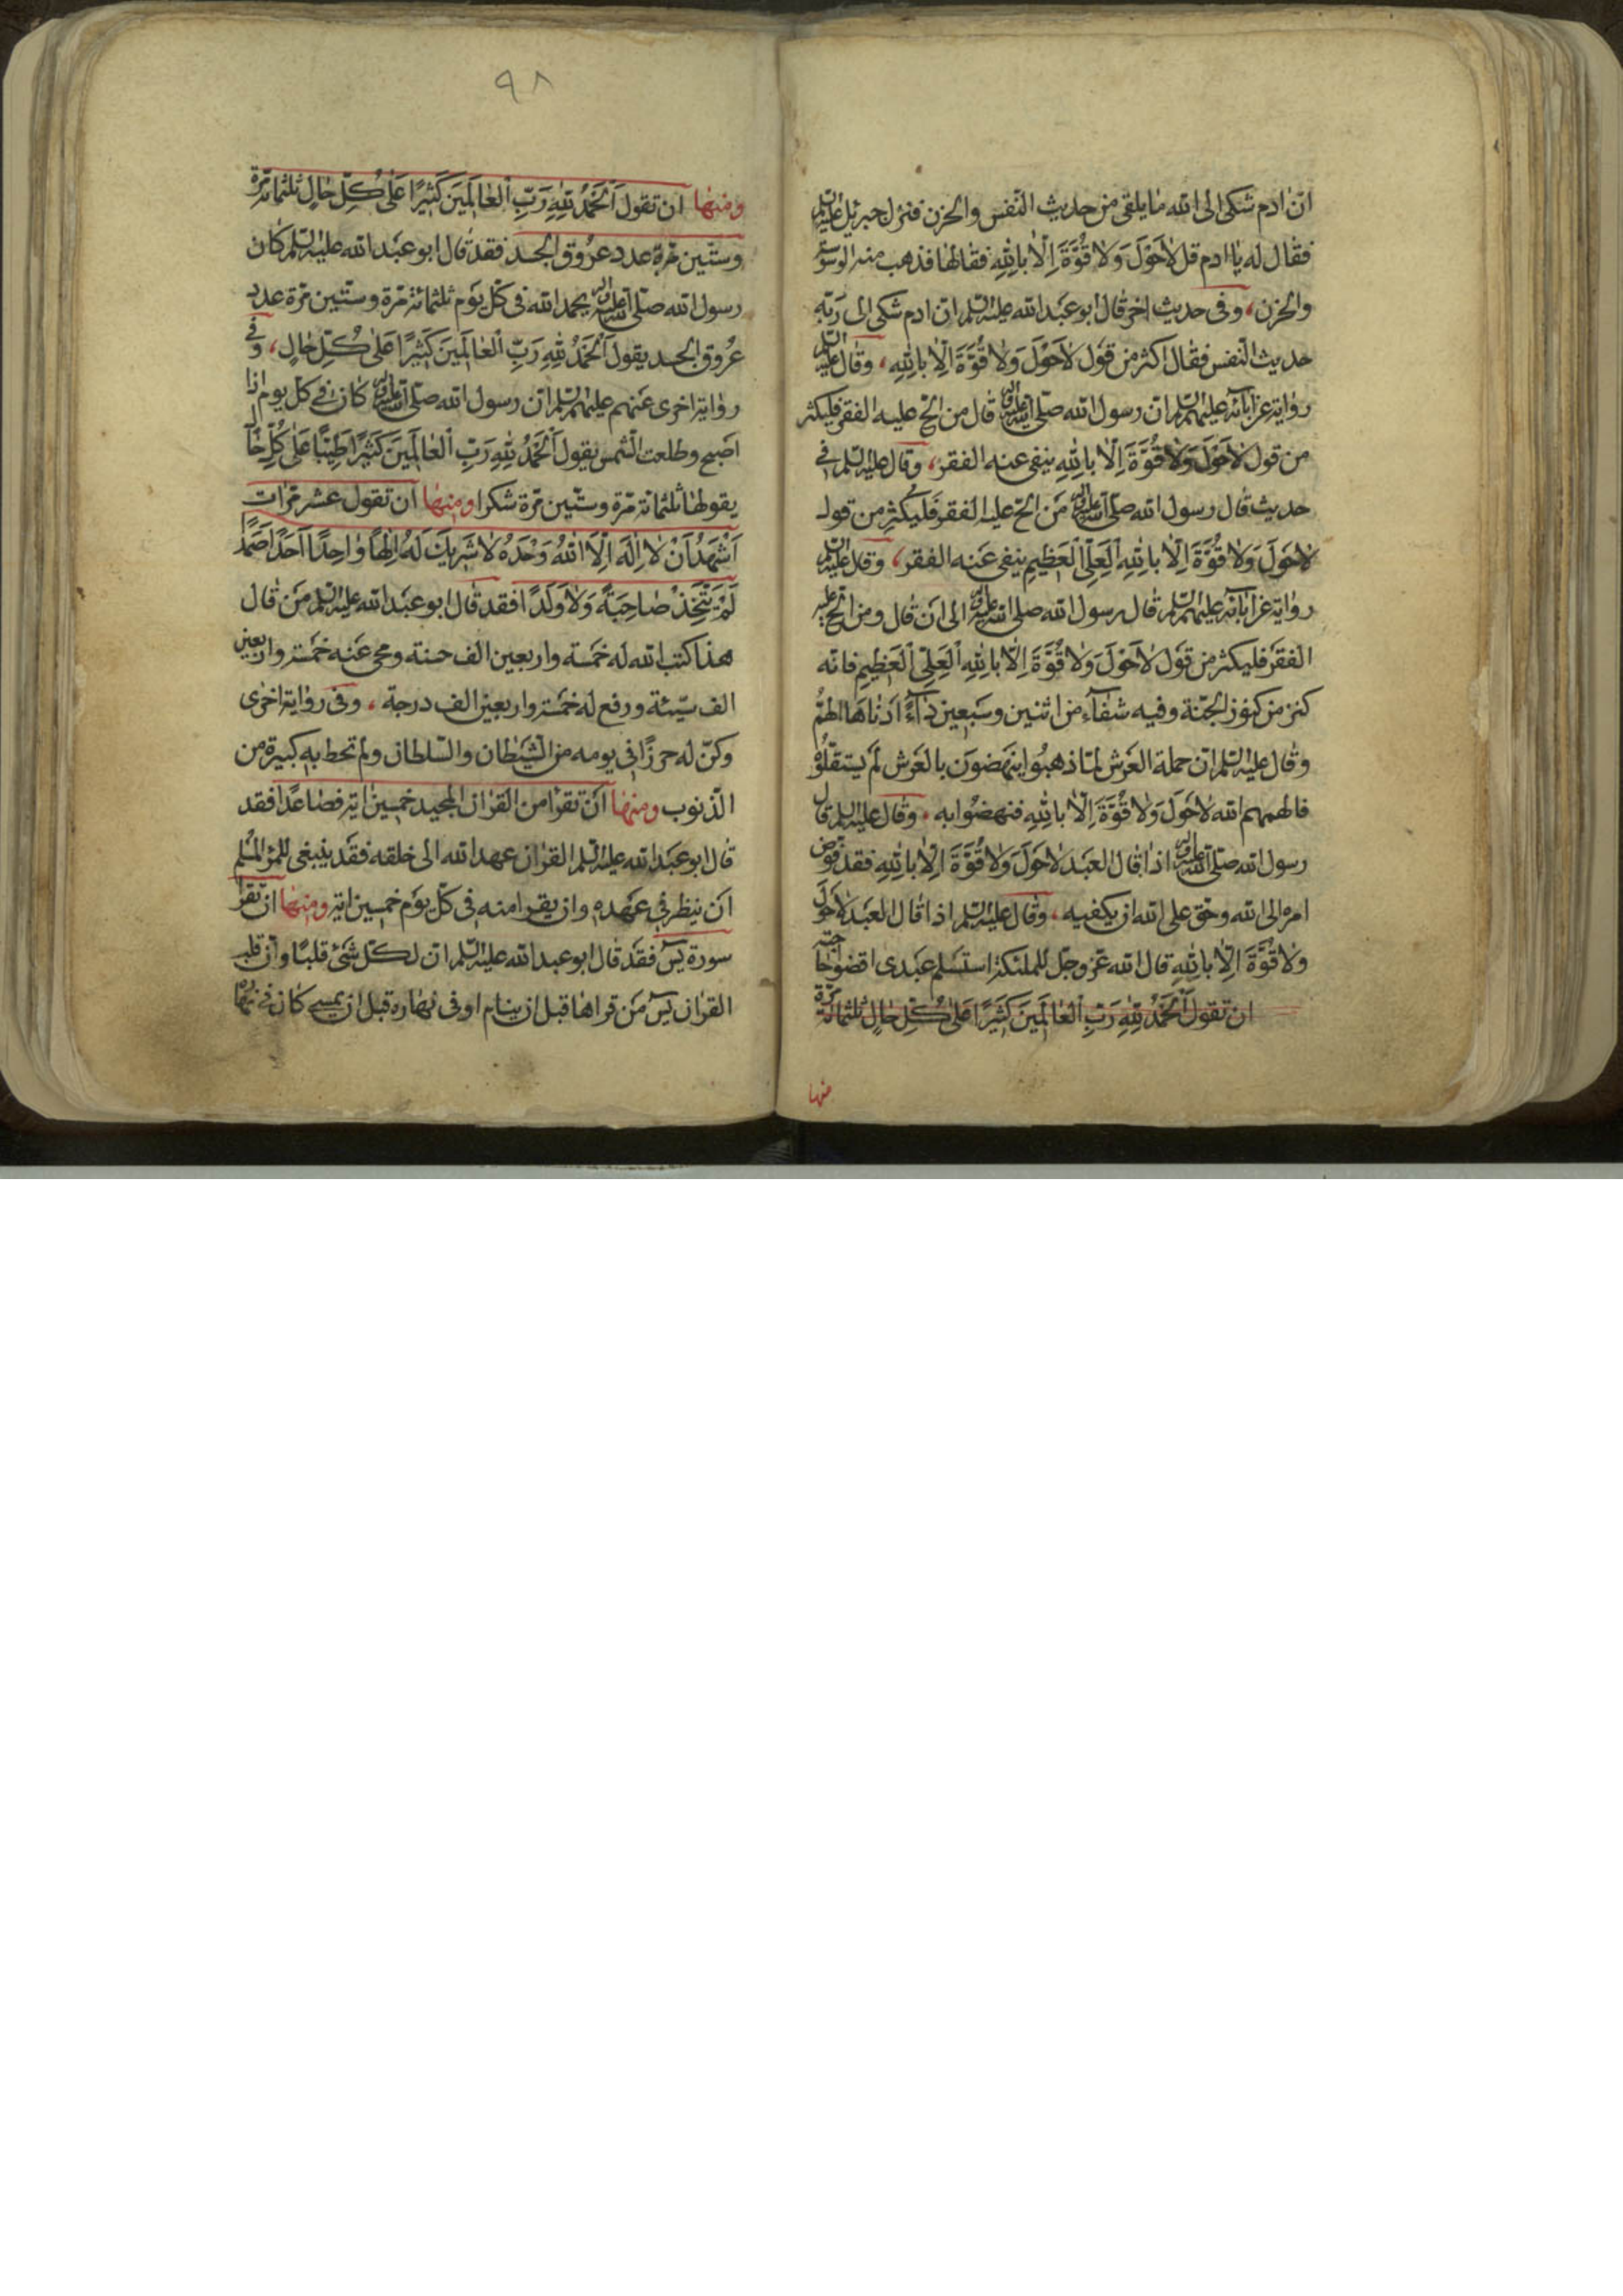 انّ ادم شكى الى الله ما يلقى من حديث النّفس والحزن فنزل جبرئيل عليه السلم
فقال له يا ادم قل لاحَوْلَ وَلا قُوَّةَ اِلّا بِاللهِ فقالها فذهب منه الوسوسة
والحزن، وفى حديث اخر قال ابو عَبدالله عليه السّلم انّ ادم شكى الى ربّه
حديث النّفس فقال اكثر من قول لاحَوْلَ وَلا قُوَّةَ اِلّا بِاللهِ، وقال عليه السلم
رواية عن ابآئه عليهم السّلم ان رسول الله صلّى الله عليه واله قال من الحّ عليه الفقر فليكثر
من قول لاحَوْلَ وَلا قُوَّةَ اِلّا بِاللهِ ينفى عنه الفقر، وقال عليه السّلم فى
حديث قال رسول الله صلّى الله عليه واله مَن الحّ عليه الفقر فَليكثِر من قول
لاحَولَ وَلا قُوَّةَ اِلّا بِاللهِ اْلعَلِيِّ اْلعَظيمِ ينفى عَنه الفقر، وقال عليه السلم
رواية عن ابآئه عليهم السّلم قال رسول الله صلى الله عليه واله الى ان قال ومن الحّ عليه
الفقر فليكثر من قول لاحَوْلَ وَلا قُوَّةَ اِلّا بِاللهِ اْلعَلِيِّ اْلعَظيمِ فانه
كنز من كنوز الجنّة وفيه شفآء من اثنين وسَبعين دآءً ادناها الهمّ
وقال عليه السّلم انّ حملة العَرش لمّا ذهبُوا ينهَضون بالعَرش لم يستقلّوه
فالهمهم الله لاحَوْلَ وَلا قُوَّةَ اِلّا بِاللهِ فنهضُوا به، وقال عليه السلم قال
رسول الله صلى الله عليه واله اذا قال العَبد لاحَوْلَ وَلا قُوَّةَ اِلّا بِاللهِ فقد فوّض
امره الى الله وحقّ على الله ان يكفيه، وقال عليه السّلم اذا قال العَبد لاحَولَ
وَلا قُوَّةَ اِلّا بِاللهِ قال الله عزّ وجلّ للملئكة استسلم عَبدى اقضوا حاجته
ان تقول اَلْحَمْدُ لِلّهِ رَبِّ اْلعالَمينَ كَثيرًا عَلى كُلِّ حالٍ ثلثمائة مرّة
منها
٩٨
ومنها ان تقول اَلْحَمْدُ لِلّهِ رَبِّ اْلعالَمينَ كَثيرًا عَلى كُلِّ حالٍ ثلثمائة مرّة
وستّين مرّة عدد عرُوق الجسد فقد قال ابو عَبدالله عليه السّلم كان
رسول الله صلّى الله عليه واله يحمد الله فى كلّ يوم ثلثمائة مرّة وستّين مرّة عدد
عُروق الجسد يقول اَلْحَمْدُ لِلّهِ رَبِّ اْلعالَمينَ كَثيرًا عَلى كُلِّ حالٍ، وفى
رواية اخرى عَنهم عليهم السّلم ان رسول الله صلى الله عليه واله كان فى كلّ يوم اذا
اصبح وطلعت الشّمس يقول اَلْحَمْدُ لِلّهِ رَبِّ اْلعالَمينَ كَثيرًا طَيِّبًا عَلى كُلِّ حال
يقولها ثلثمائة مرّة وستّين مرّة شكرا ومنها ان تقول عشر مرّات
اَشْهَدُ اَنْ لا اِلهَ اِلَّا اللهُ وَحْدَهُ لا شَريكَ لَهُ اِلهًا واحِدًا اَحَدًا صَمَدًا
لَمْ يَتَّخِذْ صاحِبَةً وَلا وَلَدًا فقد قال ابو عَبدالله عليه السّلم مَن قال
هذا كتب الله له خمَسة واربعين الف حسنة ومحى عَنه خمَسة واربعين
الف سيّئة ورفع له خمَسة واربعين الف درجة، وفى رواية اخرى
وكنّ له حرزًا فى يومه من الشّيطان والسّلطان ولم تحط به كبيرة من
الذّنوب ومنها ان تقرا من القران المجيد خمسين اية فصاعدًا فقد
قال ابو عَبدالله عليه السّلم القران عهد الله الى خلقه فقد ينبغى للمرء المُسلم
ان ينظر فى عهده وان يقرا منه فى كلّ يوم خمسين اية ومنها ان تقرا
سورة يسۤ فقد قال ابو عبدالله عليه السّلم ان لكلّ شئ قلبًا وان قلب
القران يسۤ مَن قراها قبل ان ينام او فى نهاره قبل ان يمسى كان فى نهاره